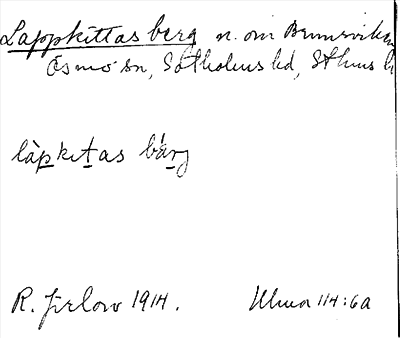 Lappkittas berg n. om Brunnsviken
Ösmo sn, Sotholms hd, Sthms l
làpkitas bárg
R. Jirlow 1914. Ulma 114:6a